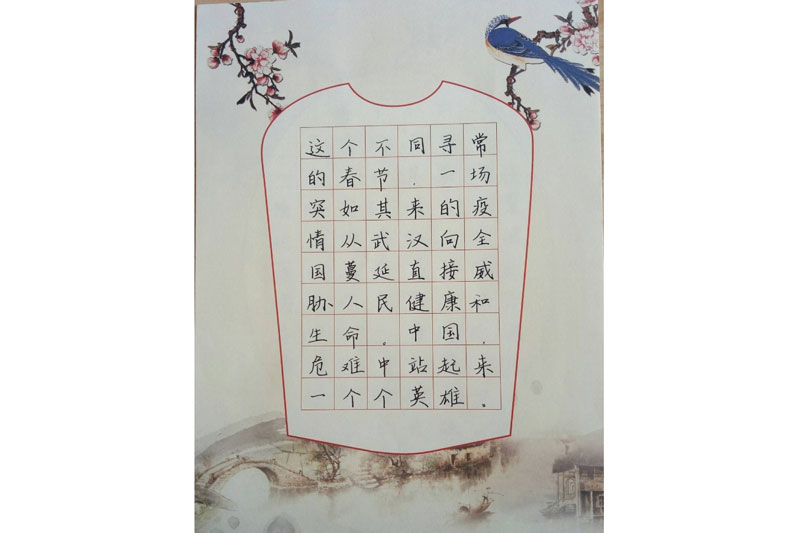 这个不同寻常
的春节，一场
突如其来的疫
情从武汉向全
国蔓延直接威
胁人民健康和
生命。中国，
危难中站起来
一个个英雄。